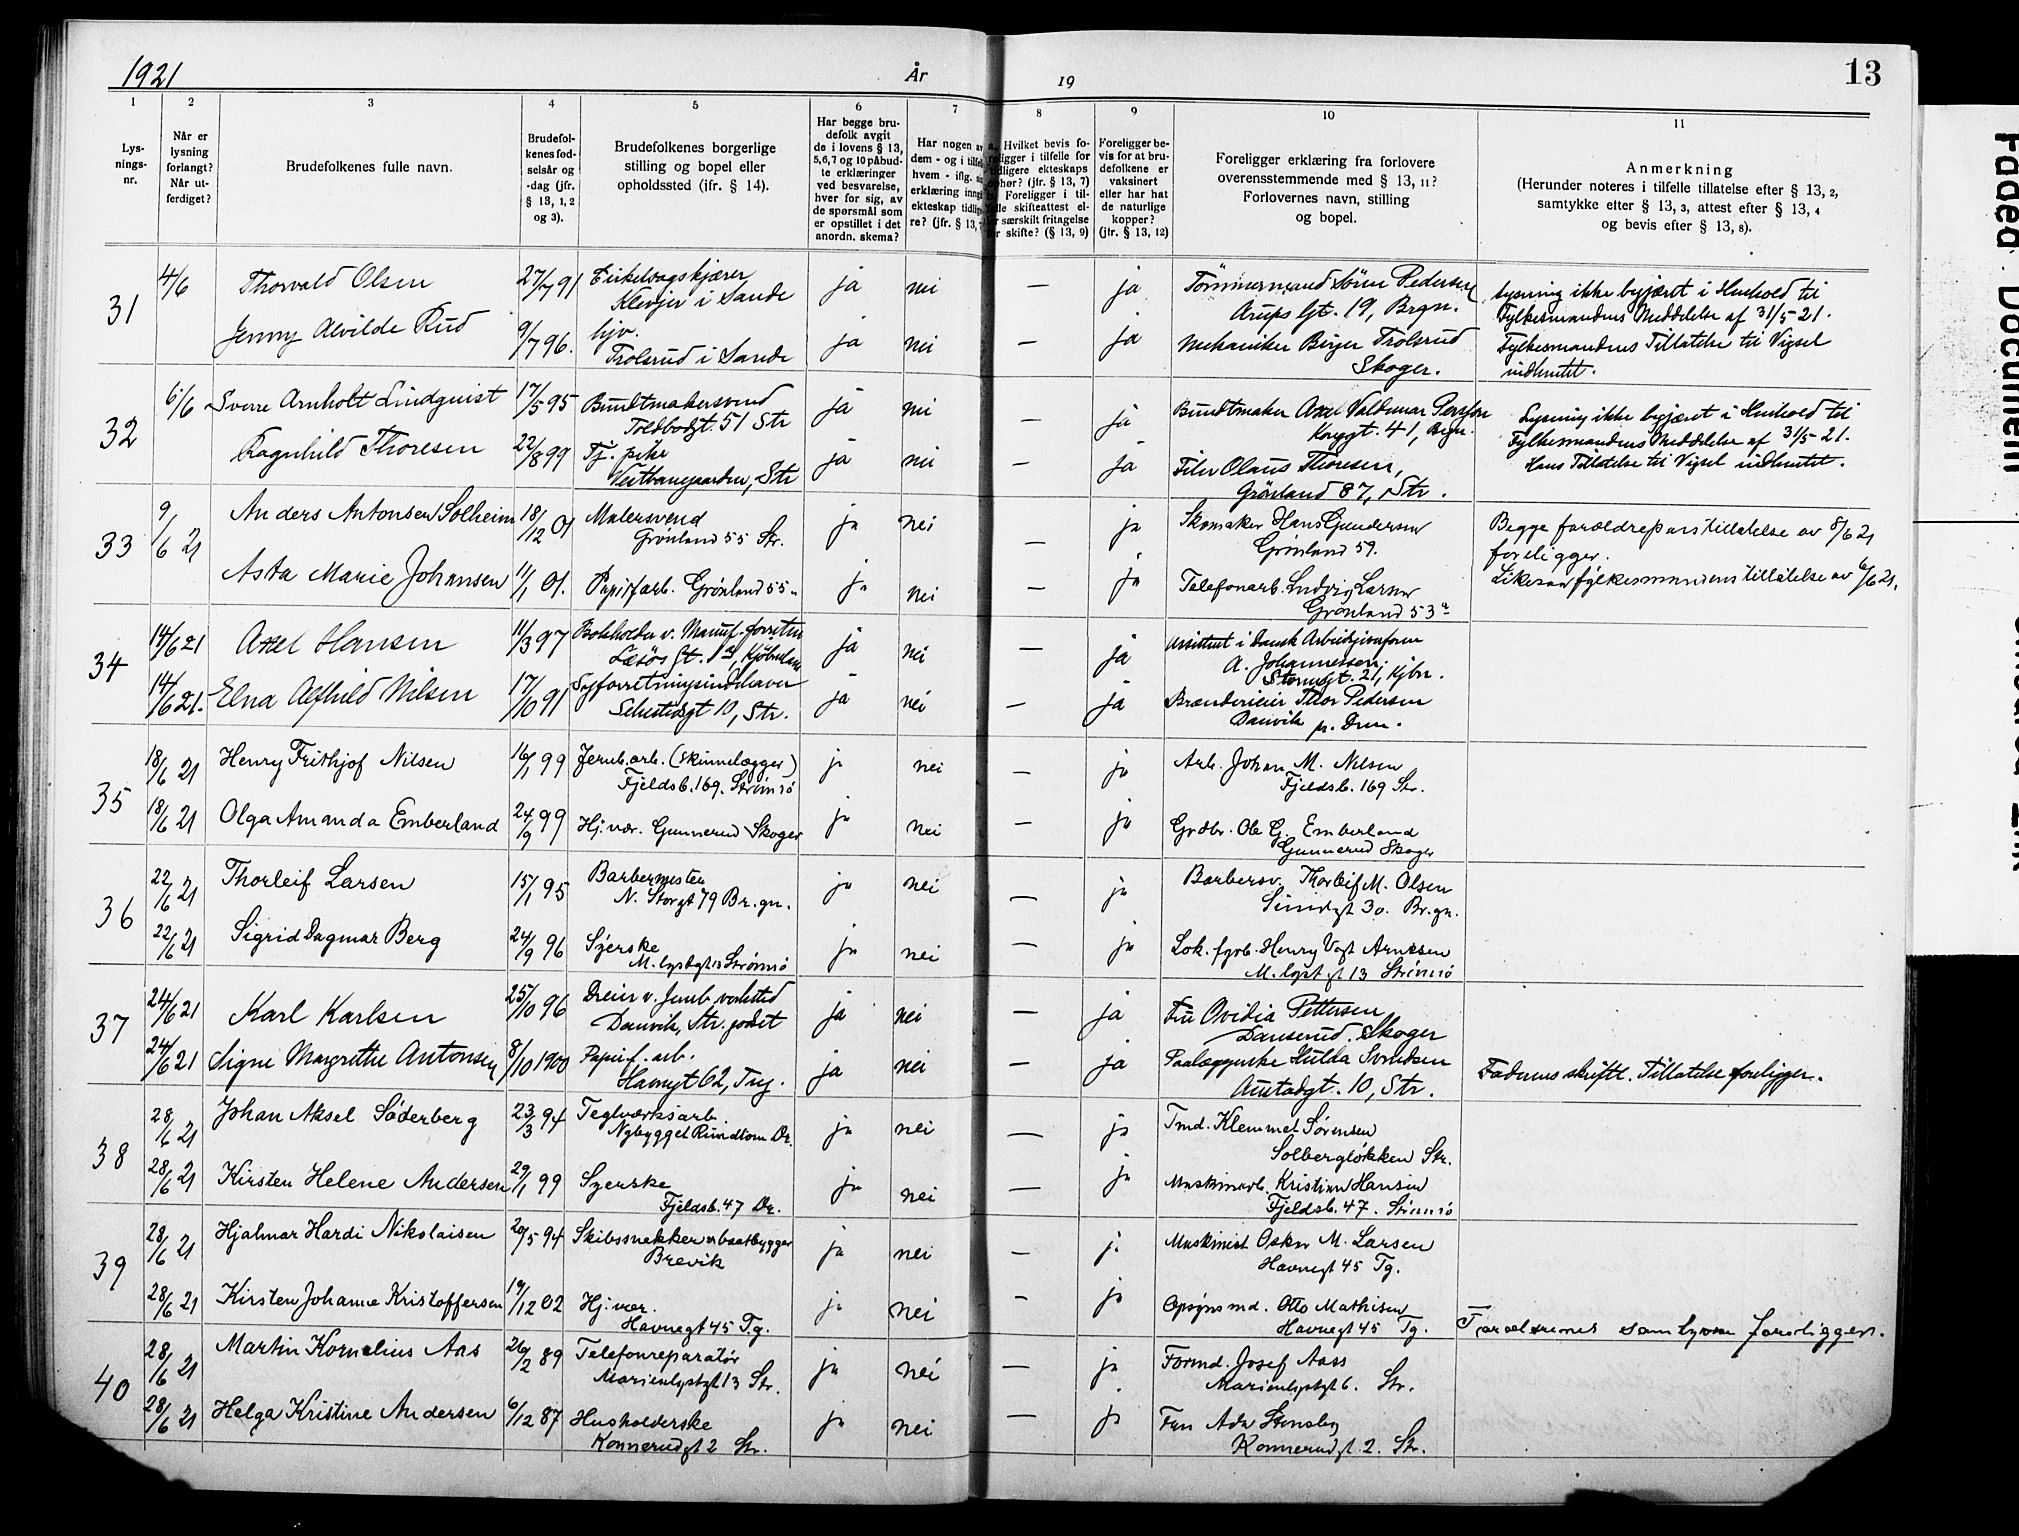 1921
År
19
13
1
2
3
4
5
6
7
8
9
10
11
Lys-
nings-
nr.
Når er
lysning
forlangt?
Når ut-
ferdiget?
Brudefolkenes fulle navn.
Brudefol-
kenes fød-
selsår og
-dag (jfr.
§ 13, 1, 2
og 3).
Brudefolkenes borgerlige
stilling og bopel eller
opholdssted (jfr. § 14).
Har begge bru-
defolk avgit
de i lovens § 13,
5, 6, 7 og 10 påbud-
te erklæringer
ved besvarelse,
hver for sig, av
de spørsmål som
er opstillet i det
anordn. skema?
Har nogen av
dem - og i tilfelle
hvem - iflg.
erklæring inng
ekteskap tidlig
re? (jfr. § 13,
Hvilket bevis fo-
religger i tilfelle for
tidligere ekteskaps
ophør? (jfr. § 13, 7)
Foreligger i til-
felle skifteattest el-
ler særskilt fritagelse
for skifte? (§ 13, 9)
Foreligger be-
vis for at bru-
defolkene er
vaksinert
eller har hat
de naturlige
kopper?
(jfr. § 13, 12)
Foreligger erklæring fra forlovere
overensstemmende med § 13, 11?
Forlovernes navn, stilling
og bopel.
Anmerkning
(Herunder noteres i tilfelle tillatelse efter § 13, 2,
samtykke efter § 13, 3, attest efter § 13, 4
og bevis efter § 13, 8).
31
4/6
Thorvald Olsen
27/7 91
Cirkelsagskjærer
Klevjer i Sande
ja
nei
—
ja
Tømmermand Søren Pedersen
Arups Gt. 19, Brgn.
Lysning ikke begjæret i Henhold til
Fylkesmandens Meddelelse af 31/5-21.
Jenny Alvilde Rud
9/7 96.
hjv.
Trolsrud i Sande
ja
nei
—
ja
Mekaniker Birger Trolsrud
Skoger.
Fylkesmandens Tillatelse til Vigsel
indhentet.
32
6/6
Sverre Arnholt Lindquist
17/5 95
Bundtmakersvend
Toldbodgt. 51 Str
ja
nei
—
ja
Bundtmaker Axel Valdemar Persson
Kongt. 41, Brgn.
Lysning ikke begjæret i Henhold til
Fylkesmandens Meddelelse af 31/5-21.
Ragnhild Thoresen
22/8 99
Tj. pike
Vestbanegaarden, Str
ja
nei
—
ja
Filer Olaus Thoresen,
Grönland 87, Str.
Hans Tillatelse til Vigsel indhentet.
33
9/6 21
Anders Antonsen Solheim
18/12 01
Malersvend
Grønland 55 Str.
ja
nei
—
ja
Skomaker Hans Gundersen
Grønland 59.
Begge forældrepars tillatelse av 8/6 21
foreligger.
Asta Marie Johansen
11/1 01.
Papirfarb. Grønland 55 "
ja
nei
—
ja
Telefonarb. Ludvig Larsen
Grønland 53a
Likesaa fylkesmandens tillatelse av 6/6 21.
34
14/6 21
Axel Hansen
11/3 97
Bokholder v. Manuf. forretn
Læsøs Gt. , Kjøbenhavn
ja
nei
—
ja
Assistent i Dansk Arbeidsgiverforen
A. Johannessen
Stormgt. 21, Kjbn.
14/6 21.
Elna Alfhild Nilsen
17/10 91
Syforretningsindehaver
Schwidsgt 10, Str.
ja
nei
—
ja
Brænderieier Thor Pedersen
Danvik pr. Drm.
35
18/6 21
Henry Frithjof Nilsen
16/1 99
Jernb. arb. (Skinnelægger)
Fjeldsb. 169. Strømsø
ja
nei
—
ja
Arb. Johan M. Nilsen
Fjeldsb. 169 Str.
18/6 21
Olga Amanda Emberland
24/9 99
Hj. vær. Gunnerud Skoger
ja
nei
—
ja
Grdbr. Ole G. Emberland
Gunnerud Skoger
36
22/6 21
Thorleif Larsen
15/1 95
Barbermester
N. Storgt 79 Br.gn.
ja
nei
—
ja
Barbersv. Thorleif M. Olsen
Smidgt 30. Br.gn.
22/6 21
Sigrid Dagmar Berg
24/9 96
Syerske
M. lystgt 13 Strømsø
ja
nei
—
ja
Lok. fyrb. Henry Vogt Arnesen
M. lyst gt 13 Strömsö
37
24/6 21
Karl Karlsen
25/10 96
Dreier v. Jernb. verksted
Danvik, Str. jordet
ja
nei
—
ja
Fru Ovidia Pettersen
Danserud. Skoger
24/6 21
Signe Margrethe Antonsen
8/10 1900
Papirf. arb.
Havnegt 62, Tng.
ja
nei
—
ja
Paalæggerske Hulda Svendsen
Amtodgt. 10, Str.
Faderens skriftl. Tillatelse foreligger.
38
28/6 21
Johan Aksel Söderberg
23/3 94
Teglværksarb.
Nybygget Rundtom Dr.
ja
nei
—
ja
Tmd. Klemmet Sørensen
Solbergløkken Str.
28/6 21
Kirsten Helene Andersen
29/1 99
Syerske
Fjeldsb. 47 Dr.
ja
nei
—
ja
Maskinarb. Kristian Hansen
Fjeldsb. 47. Strømsø
39
28/6 21
Hjalmar Hardi Nikolaisen
20/5 94
Skibssnekker og baatbygger
Brevik
ja
nei
—
ja
Maskinist Oskar M. Larsen
Havnegt 45 Tg.
28/6 21
Kirsten Johanne Kristoffersen
19/12 02
Hj. vær.
Havnegt 45 Tg.
ja
nei
—
ja
Opsynsmd. Otto Mathisen
Havnegt 45 Tg.
Forældrenes samtykke foreligger.
40
28/6 21
Martin Kornelius Aas
26/2 89
Telefonreparatør
Marienlystgt 13 Str.
ja
nei
—
ja
Formd. Josef Aass
Marienlystgt 6. Str.
28/6 21
Helga Kristine Andersen
6/12 87
Husholderske
Konnerudgt 2 Str.
ja
nei
—
ja
Fru Ada Stensby
Konnerudgt. 2. Str.
Faded Document